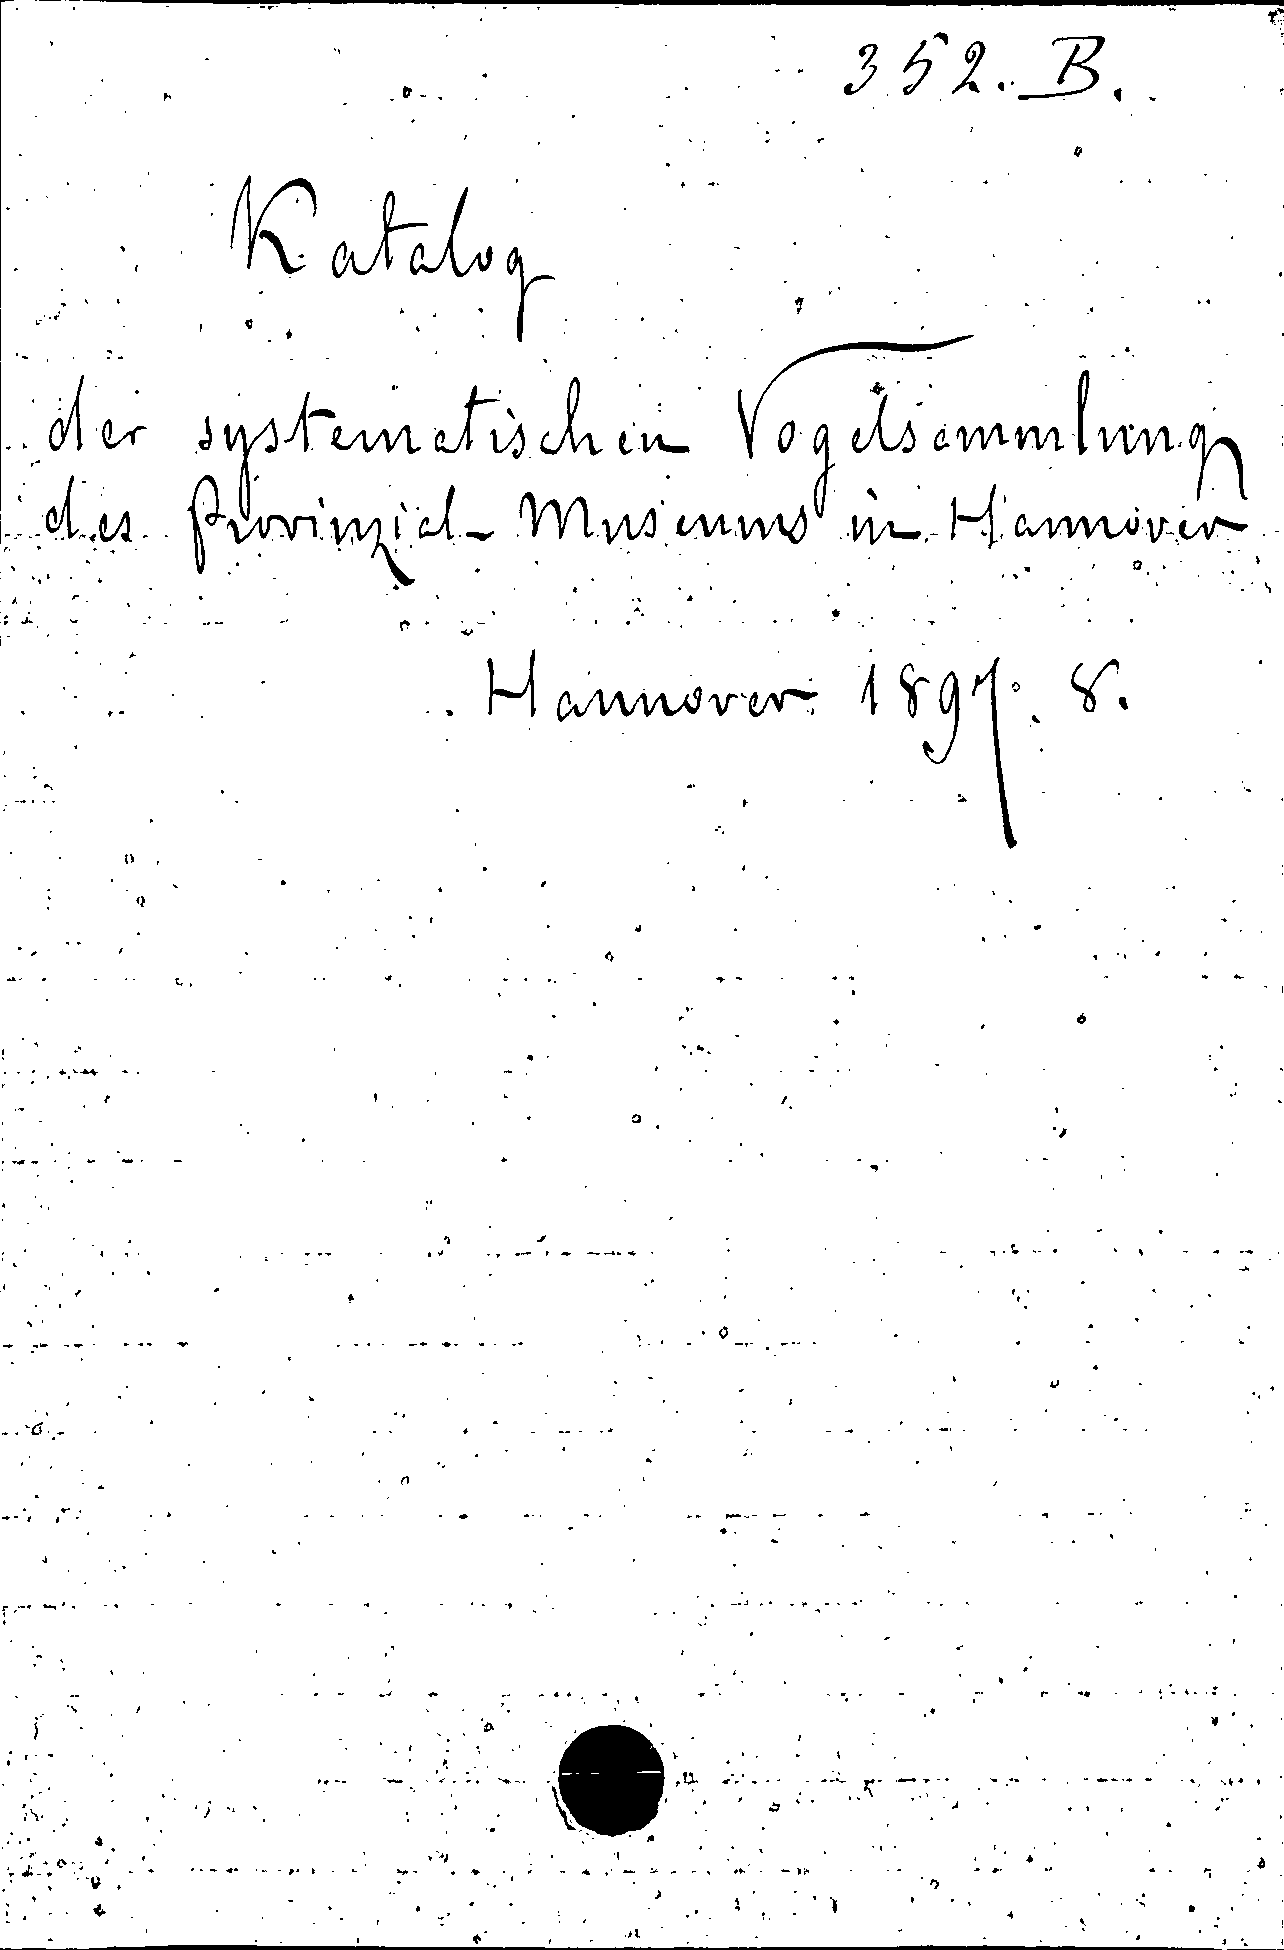 352. B.
Katalog
der systematischen Vogelsammlung
des Provinzial-Museums in Hannover
Hannover 1897. 8.